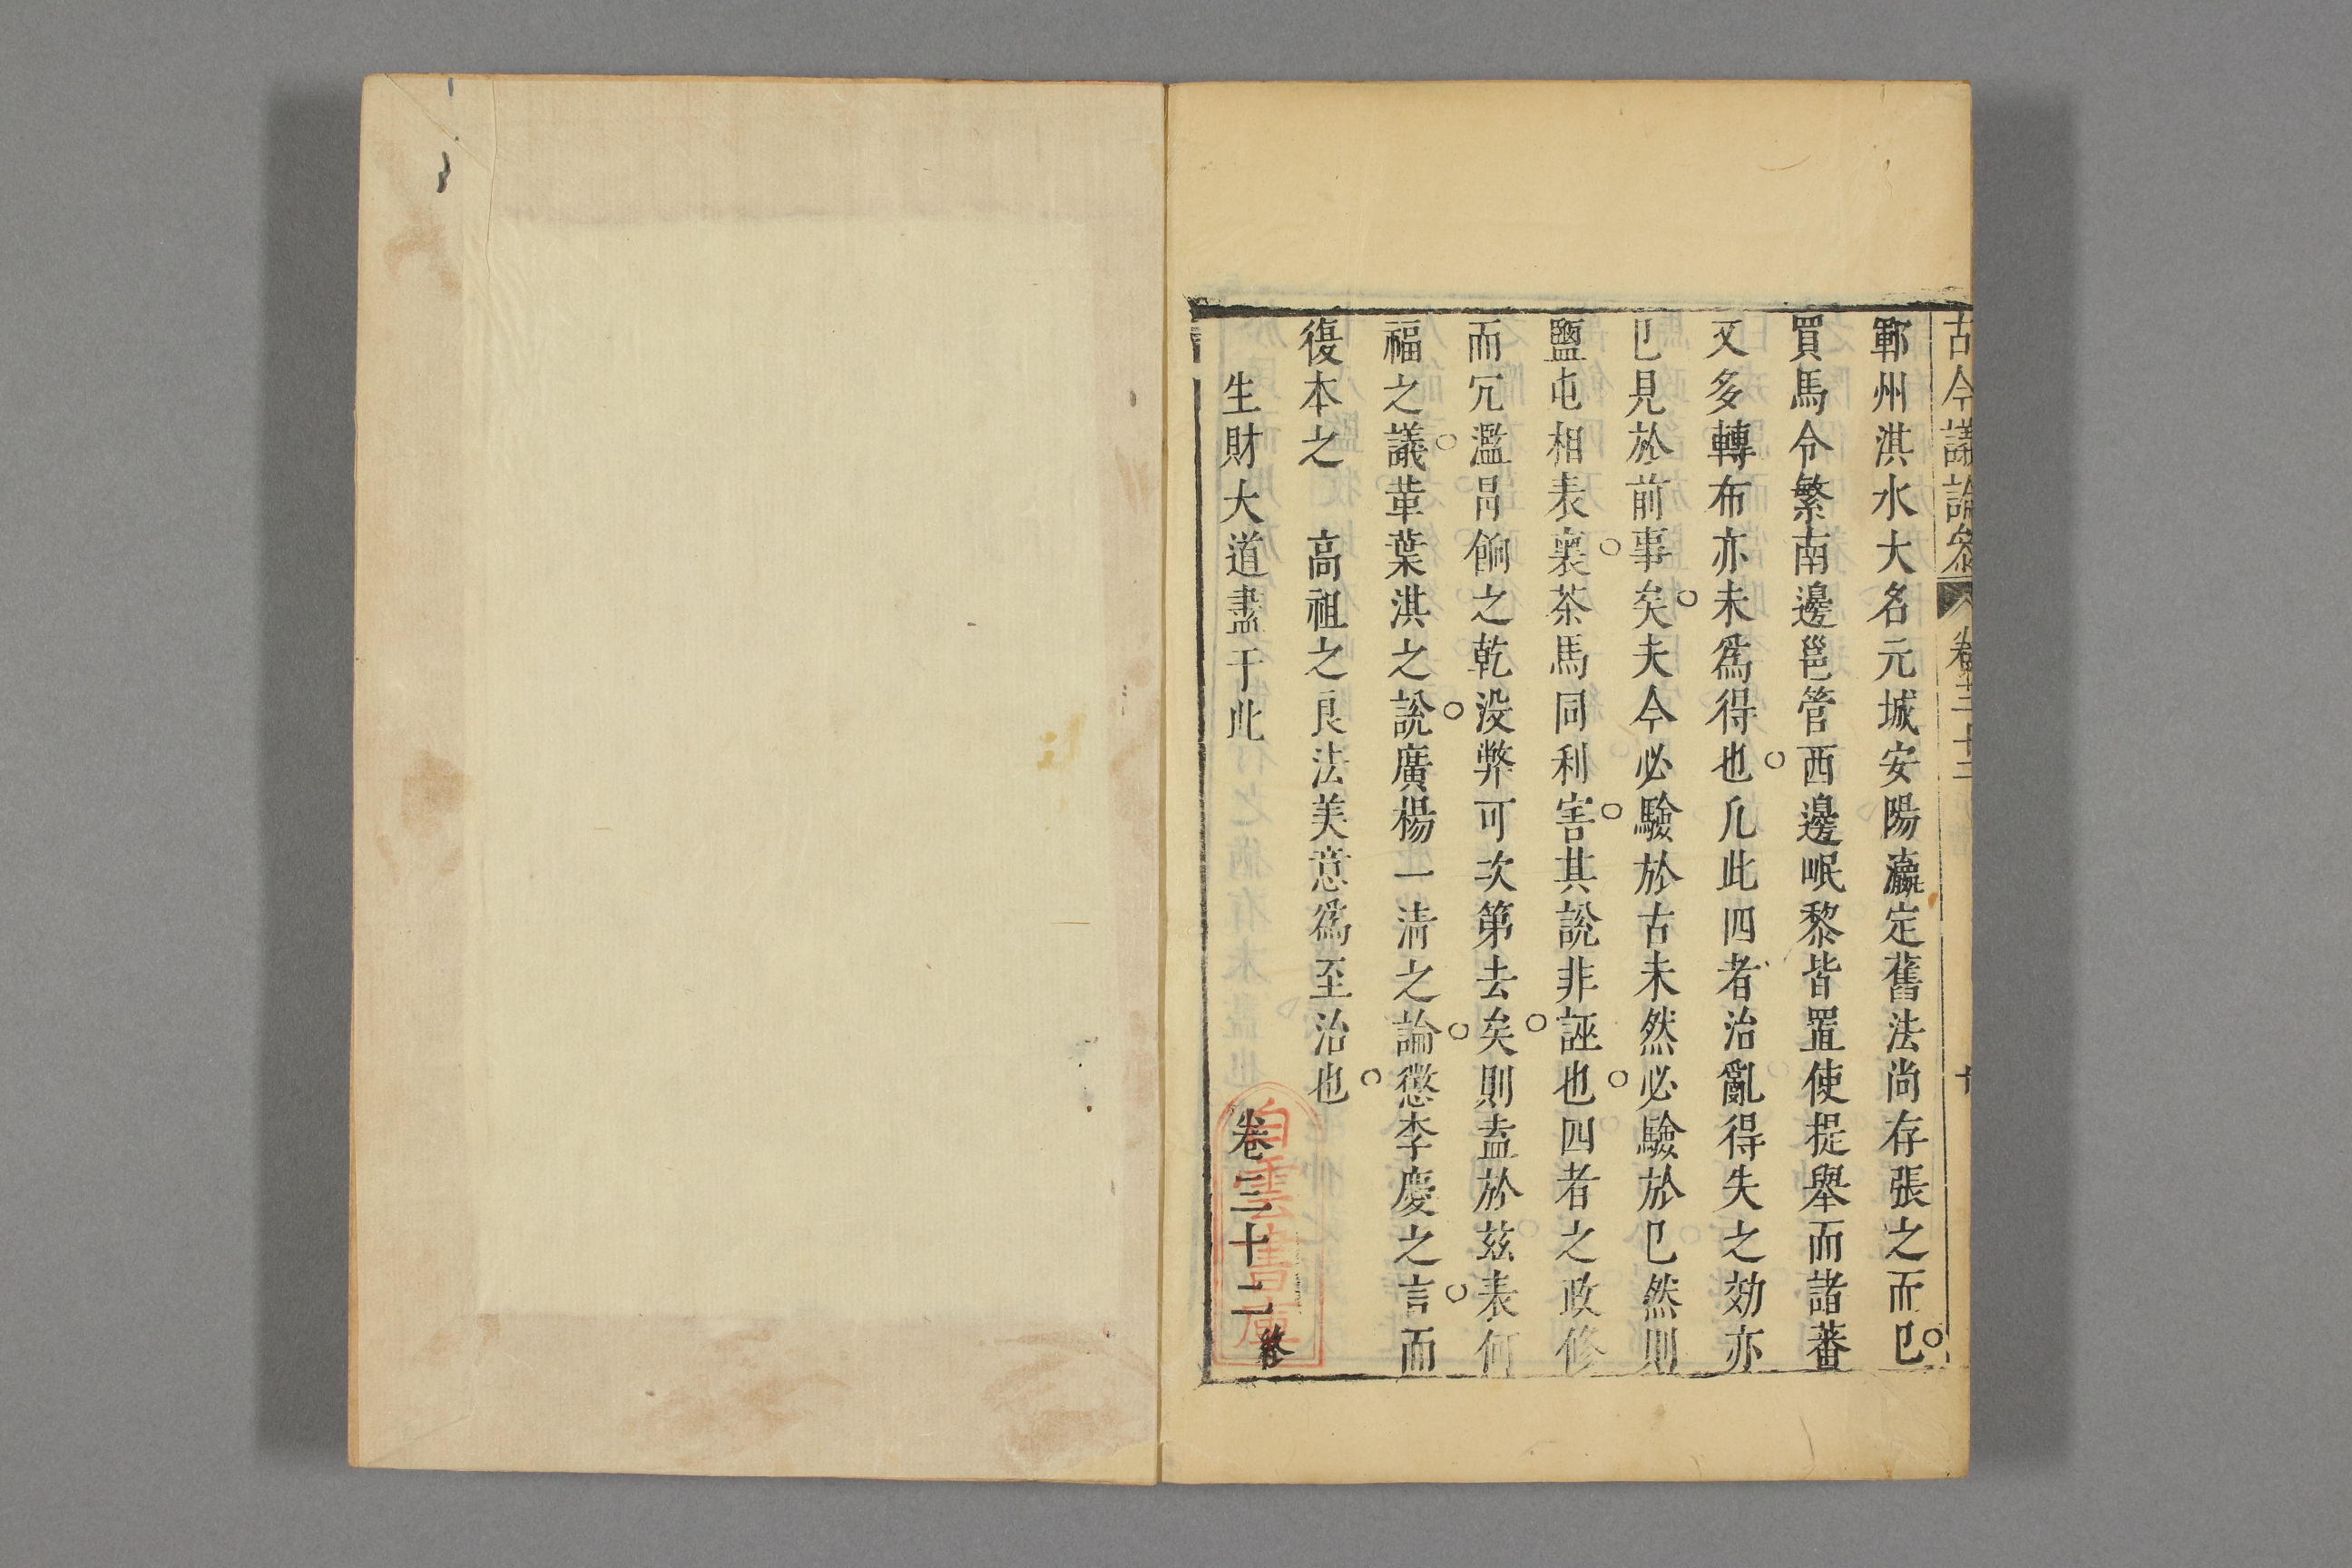 古今議論參 卷三十二 十
鄆州淇水大名元城安陽瀛定舊法尚存張之而已
買馬令繁南邊邕管西邊岷黎皆置使提舉而諸蕃
又多轉布亦未爲得也凢此四者治亂得失之効亦
已見於前事矣夫今必驗於古未然必驗於已然則
鹽屯相表裏茶馬同利害其說非誣也四者之政修
而冗濫冐餉之乾没弊可次第去矣則盍於兹表何
福之議革葉淇之說廣楊一清之論懲李慶之言而
復本之　高祖之良法美意爲至治也
生財大道盡于此
卷三十二終
白雲書庫